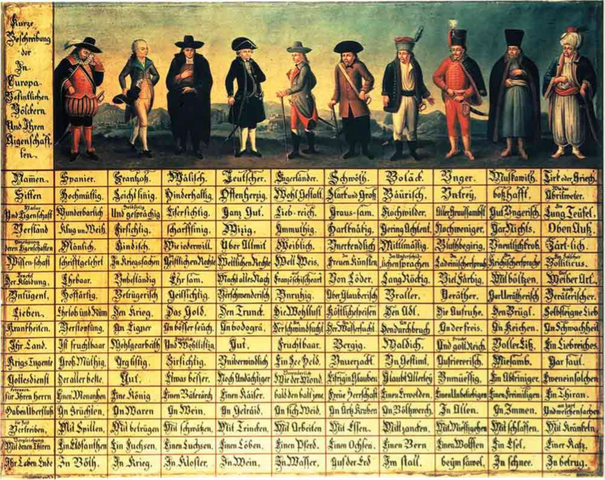 Kurze
Beschreibung
der
In
Europa
Befintlichen
Völckern
Und Ihren
Aigenschaff
ten.
Namen. Spanier. Frantzoß. Wälisch. Teutscher. Engerländer. Schwöth. Boläck. Unger. Muskawith. Tirk oder Griech.
Sitten Hochmüttig. Leicht sinig. Hinderhaltig Offenhertzig. Wohl Gestalt. Starck und Groß Bäurisch. Untrey. boßhafft. Abrilweter.
Und Eigenschaft Wunderbarlich Und gesprächig Eifersichtig. Gantz Gut. Lieb-reich. Graus-sam. Hochwilder. Aller Graussambst. Gut Ungerisch. Lung Teufel.
Verstand Klug un Weiß. Firsichtig. scharffsinig. Witzig. Ammuthig. Hartknädig. Gering Achtent. Nochweniger. Gar Nichts. Oben Auß.
deren Eigenschaften Mänlich. Kindisch. Wie iederwill. Über Allmit Weiblich. Unerkendlich Mittlmässig. Bluthbegirig. Unentlichkrob Zärt-lich.
Wissenschaft schriftgelehrt In Kriegssachen Geistlichen Rechte Weltlichen Rechte Welt Weis. Freuen Künsten Politicus.
der Klaidung. Ehrbaar. Unbeständig Ehrsam. Macht alles Nach Frantzeischeart Von Löder. Lang Röckig. Viel Färbig. Mit böltzen. Weiber Art.
Untugent. Hoffärtig. Betrügerisch Geillsichtig. Verschwenderisch Unruhig. Über Glauberisch Braller. Veräther. Gar Verätherisch Veräterischer.
Lieben. Ehrlob und Rüm Den Krieg. Das Gold. Den Trunck. Die Wohllust Köstlichespeisen Den Adl. Die Aufruhe. Den Brügl. Selbsteigne Lieb
Kranckheiten. Verstopfung. An Eigner An böser seüch. An bodogrä. Der schwindsucht Der Wassersucht Den Durchbruch An der freis. An Keichen. An Schwachheit
Ihr Land. Ist fruchtbaar Wohlgearbeith Und Wohllistig Gut. Fruchtbaar. Bergig. Waldich. Und golt Reich. Voller Eiß. Ein Liebreiches.
Krigs Tugente Groß Müthig. Arglistig. Firsichtig Unüberwindlich Ein See Held. Unverzackt Un Gestimt. Aufriererisch. Miesamb. Gar faul.
Gottesdienst Der aller beste. Gut. Etwas besser. Noch Andächtiger Wie der Mond Eifrig in Glauben Glaubt Allerley Unmüessig. Ein Abtriniger. Eweneinsolchen
für Ihren Herrn Einen Monarchen Eine König Einen Batterärch. Einen Käiser. bald den bald jene Freüe Herschaft Einen Erwelden. Einen Unbeliebigen Einen Freimilligen Ein Thiran.
Haben Überfluß An Früchten. An Waren An Wein. An Getraid. An sich Weid. An Ärtz Kruben An Böltzwerch. In Allen. An Immen. Und weichen sachen
Vertreiben. Mit Spillen. Mit betrügen Mit schwätzen. Mit Trincken. Mit Arbeiten Mit Essen. Mit zancken. Mit Müessigehen Mit schlaffen. Mit Kränkeln
Mit denen Thiren Ein Elöfanthen Ein Fuchsen. Einen Luchsen. Einen Löben. Einen Pferd. Einen Ochsen. Einen Bern Einen Wolffen Ein Esel. Einer Katz.
Ihr Leben Ende In Böth. In Krieg. In Kloster. In Wein. In Wasser. Auf der Erd Im stall. beym säwel. In schnee. In betrug.